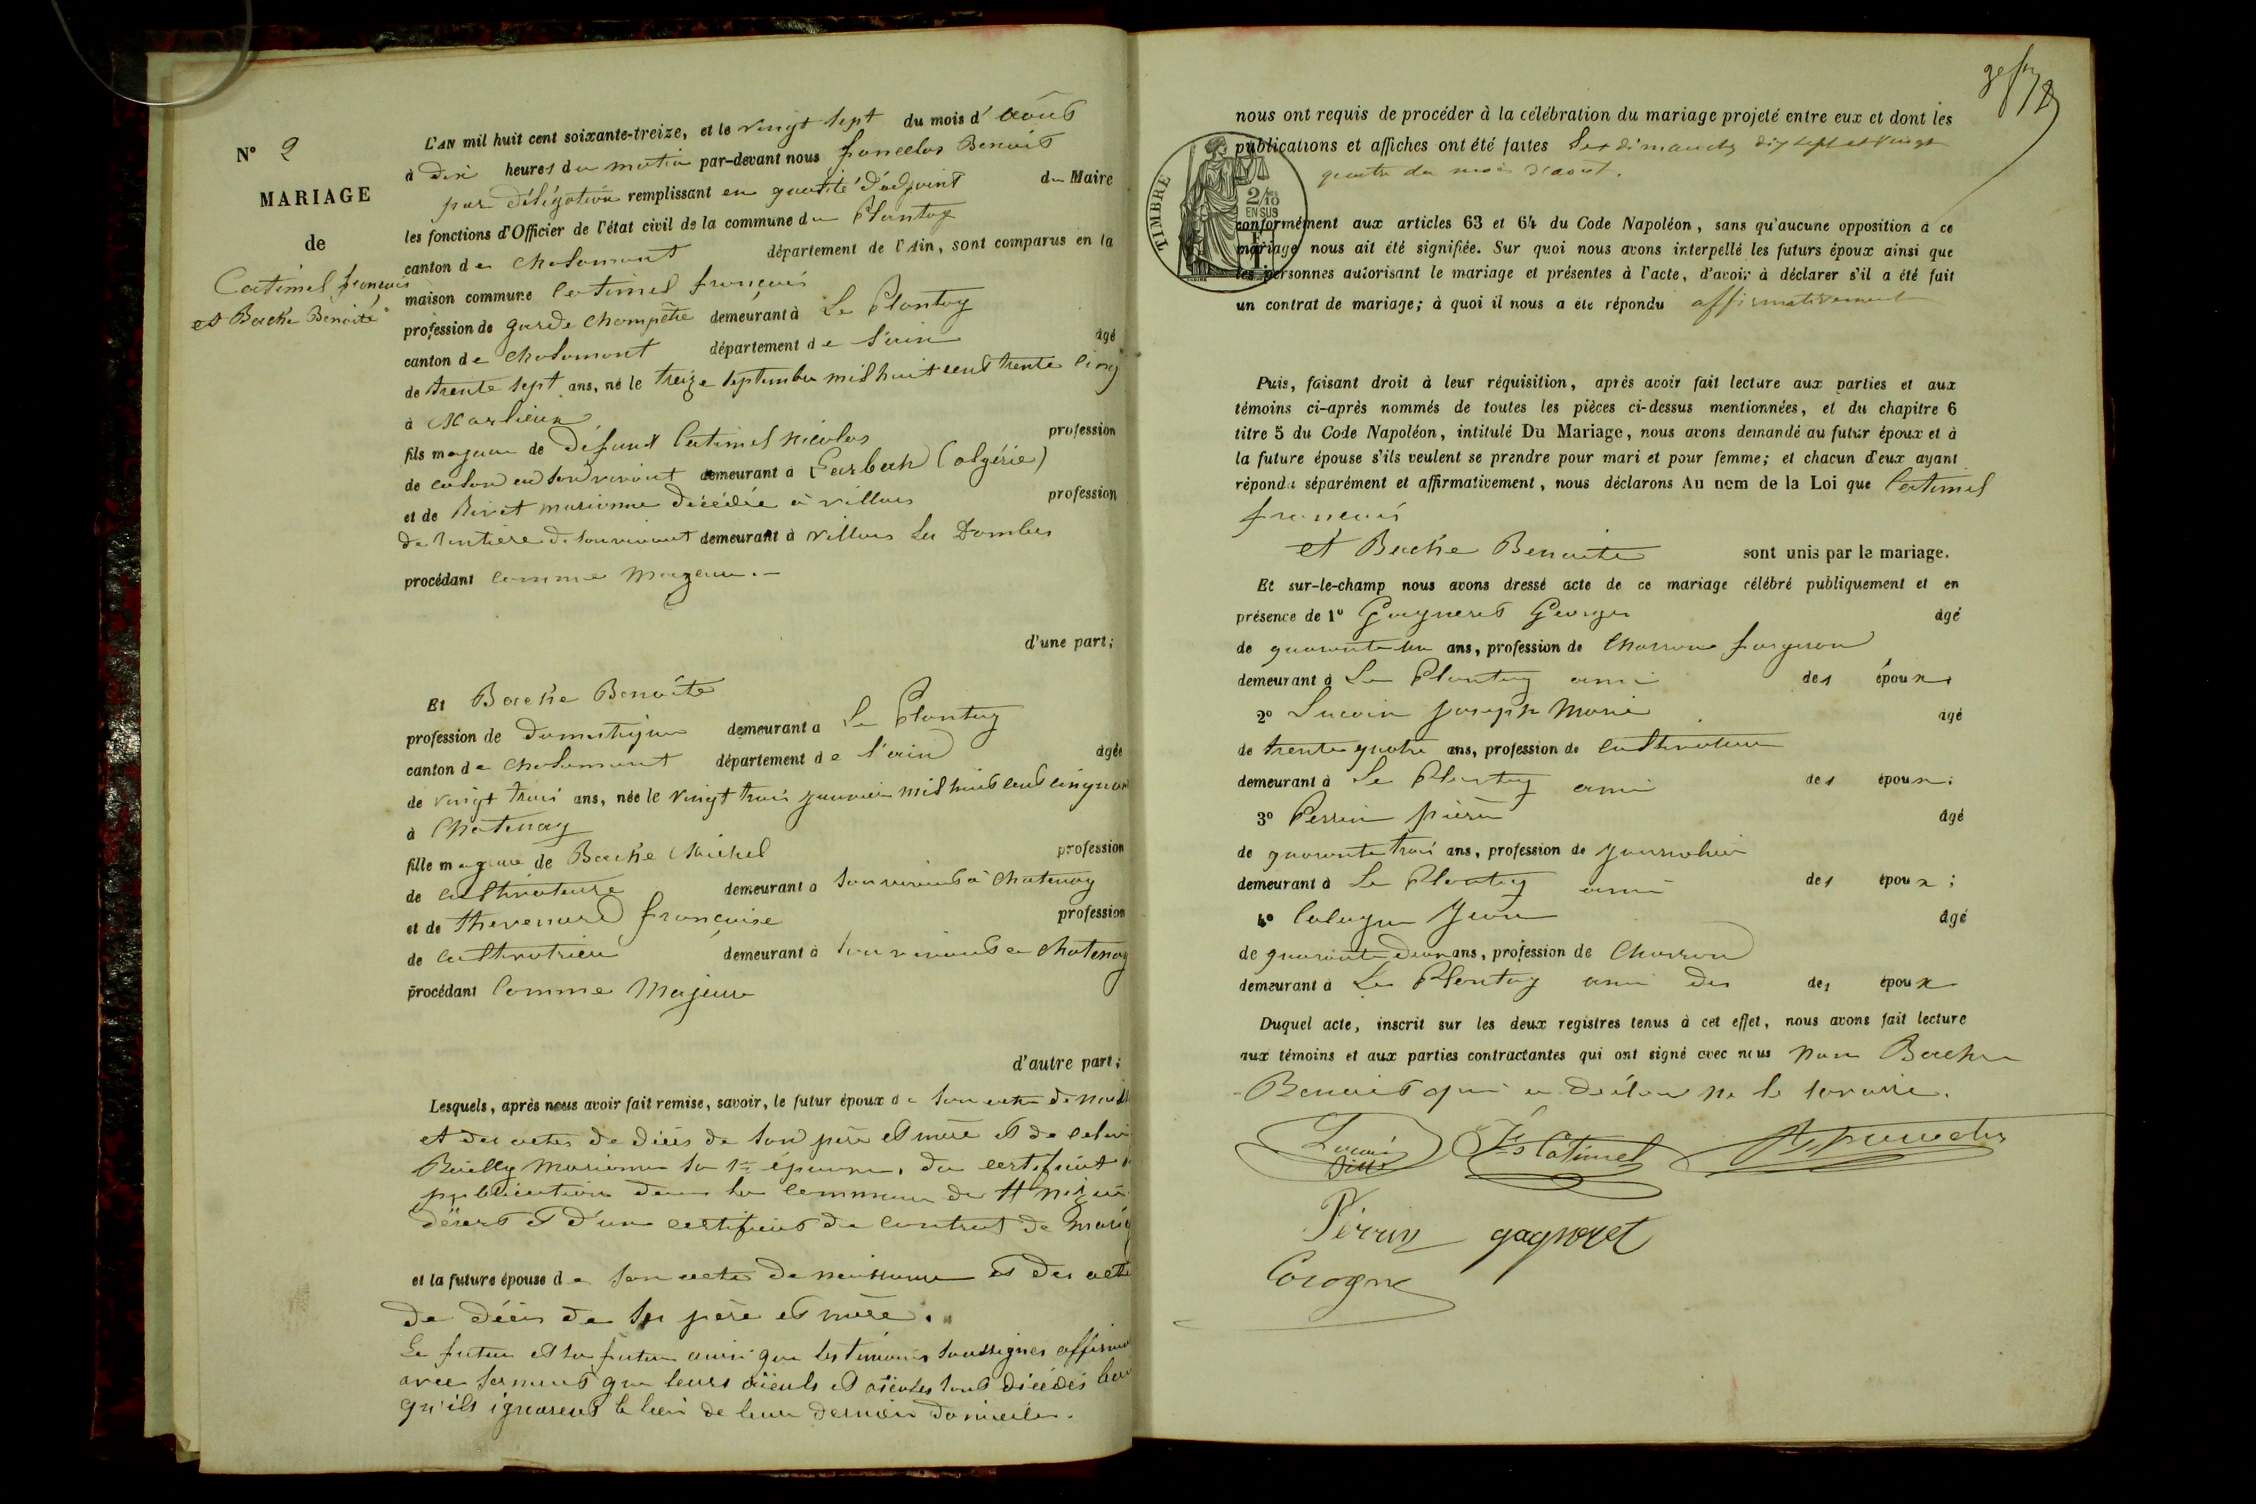 N° 2
MARIAGE
de
Catimel françois
et Backe Benoite
L'AN mil huit cent soixante-treize, et le vingt sept du mois d'août
à dix heures du matin par-devant nous francelos Benoit
par délégation remplissant en qualité d'adjoint du Maire
les fonctions d'Officier de l'état civil de la commune du Plantay
canton de chalamont département de l'Ain, sont comparus en la
maison commune Catimel françois
profession de garde champêtre demeurant à Le Plantay
canton de chalamont département de l'ain âgé
de trente sept ans, né le treize septembre mil huit cent trente cinq
à Marlieux
fils majeur de défunt Catimel nicolas profession
de colon en son vivant demeurant à (algérie)
et de Rivet marianne décédée à villars profession
de rentière de son vivant demeurant à villars Les Dombes
procédant comme majeur.
d'une part;
Et Backe Benoite
profession de domestique demeurant a Le Plantay
canton de chalamont département de l'ain âgée
de vingt trois ans, née le vingt trois janvier mil huit cent cinquan
à Chatenay
fille majeure de Backe Michel profession
de cultivateur demeurant a son vivant à chatenay
et de thevenard françoise profession
de cultivatrice demeurant à son vivant a chatenay
procédant Comme Majeure
d'autre part;
Lesquels, après nous avoir fait remise, savoir, le futur époux de son acte de naiss
et des actes de décès de son père et mère et de celui
Marianne sa 1re épouse, du certificat
publication dans la commune de St nizier
désert et d'un certificat du contrat de mariag
et la future épouse de son acte de naissance et des acte
de décès de ses père et mère.
Le futur et la future ainsi que les témoins soussignés affirment
avec serment que leurs aïeuls et aïeules sont décédés
qu'ils ignorent le lieu de leur dernier domicile.
nous ont requis de procéder à la célébration du mariage projeté entre eux et dont les
publications et affiches ont été faites Les dimanches dix sept et vingt
quatre du mois d'août.
TIMBRE
2/10
EN SUS
conformément aux articles 63 et 64 du Code Napoléon, sans qu'aucune opposition à ce
mariage nous ait été signifiée. Sur quoi nous avons interpellé les futurs époux ainsi que
les personnes autorisant le mariage et présentes à l'acte, d'avoir à déclarer s'il a été fait
un contrat de mariage; à quoi il nous a été répondu affirmativement
Puis, faisant droit à leur réquisition, après avoir fait lecture aux parties et aux
témoins ci-après nommés de toutes les pièces ci-dessus mentionnées, et du chapitre 6
titre 5 du Code Napoléon, intitulé Du Mariage, nous avons demandé au futur époux et à
la future épouse s'ils veulent se prendre pour mari et pour femme; et chacun d'eux ayant
répondu séparément et affirmativement, nous déclarons Au nom de la Loi que Catimel
françois
et Backe Benoite sont unis par le mariage.
Et sur-le-champ nous avons dressé acte de ce mariage célébré publiquement et en
présence de 1° Gagneret Georges âgé
de quarante un ans, profession de Charron forgeron
demeurant à Le Plantay ami des époux
2° Joseph Marie âgé
de trente quatre ans, profession de Cultivateur
demeurant à Le Plantay ami des époux;
3° Perrin pierre âgé
de quarante trois ans, profession de journalier
demeurant à Le Plantay ami des époux;
4° Cologne Jean âgé
de quarante deux ans, profession de Charron
demeurant à Le Plantay ami des des époux
Duquel acte, inscrit sur les deux registres tenus à cet effet, nous avons fait lecture
aux témoins et aux parties contractantes qui ont signé avec nous non Backe
Benoite qui a déclaré ne le savoir.
fs Catimel
Perrin gagneret
Cologne